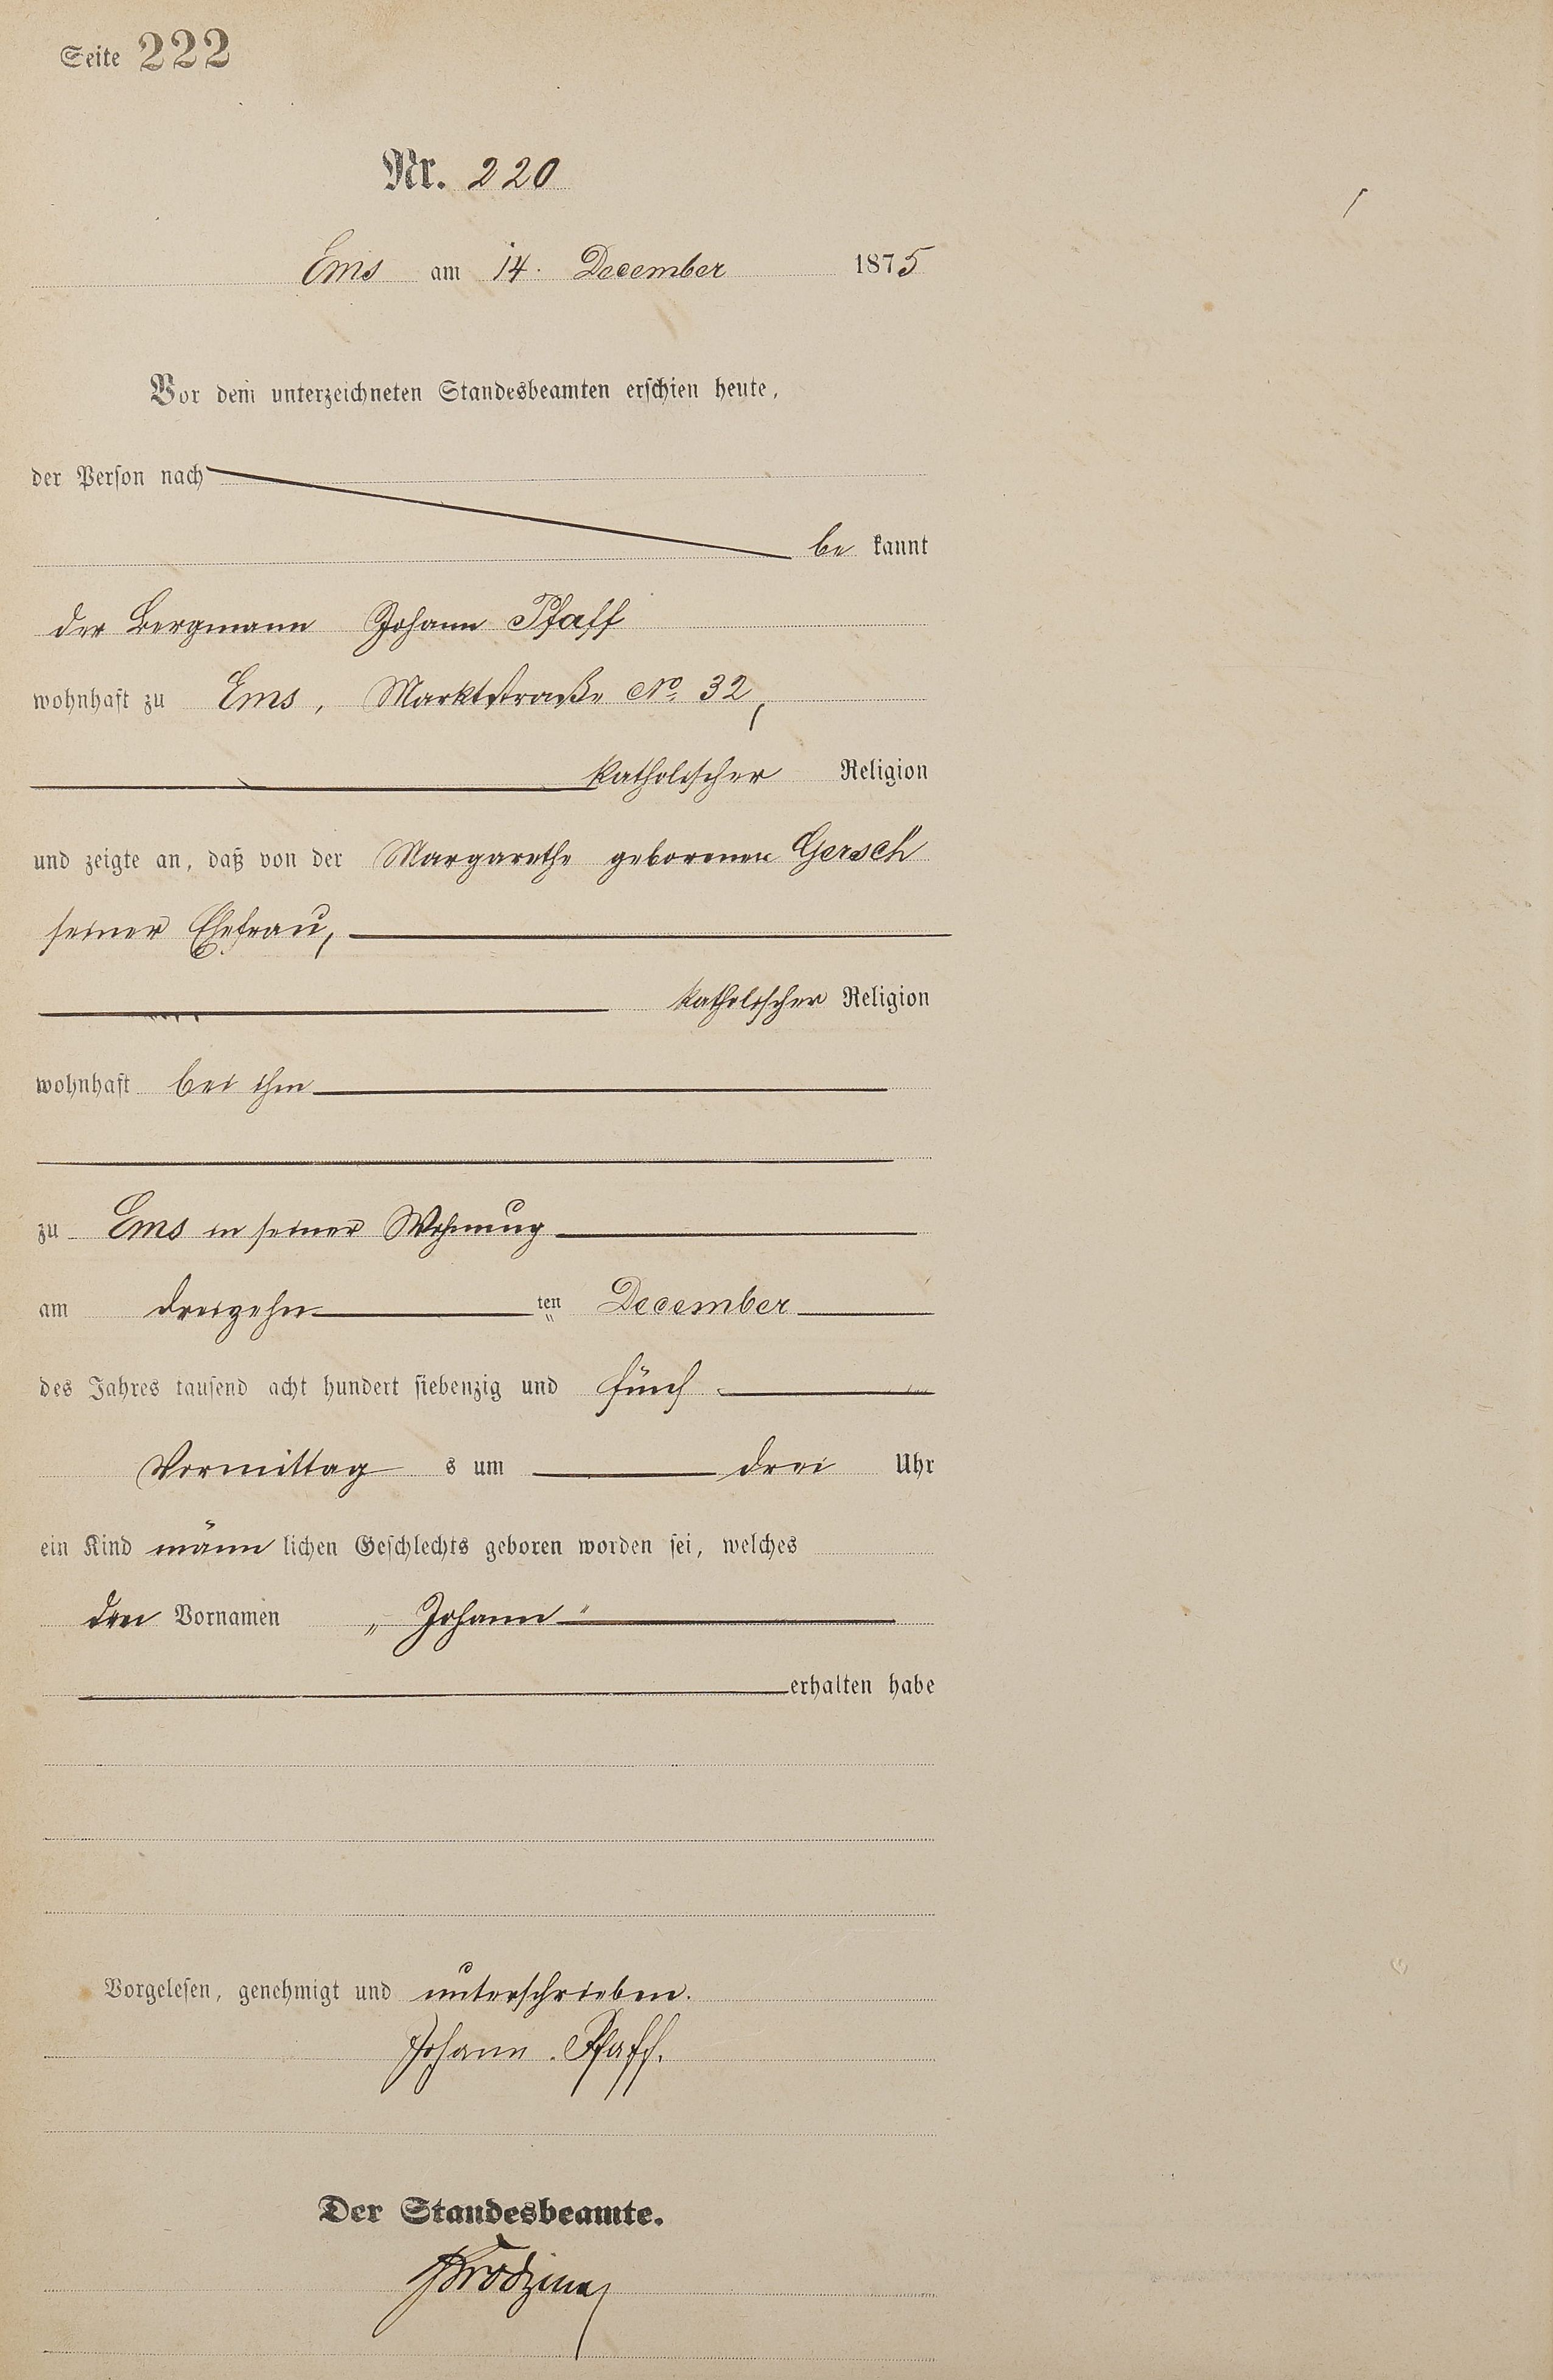 Seite 222
Nr. 220
Ems am 14. December 1875
Vor dem unterzeichneten Standesbeamten erschien heute,
der Person nach
be kannt
der Bergmann Johann Pfaff
wohnhaft zu Ems, Marktstraße No. 32,
katholischer Religion
und zeigte an, daß von der Margarethe geborenen Gersch
seiner Ehefrau,
katholischer Religion
wohnhaft bei ihm
zu Ems in seiner Wohnung
am dreizehn ten December
des Jahres tausend acht hundert siebenzig und fünf
Vormittag s um drei Uhr
ein Kind männ lichen Geschlechts geboren worden sei, welches
den Vornamen „Johann"
erhalten habe
Vorgelesen, genehmigt und unterschrieben.
Johann. Pfaff.
Der Standesbeamte.